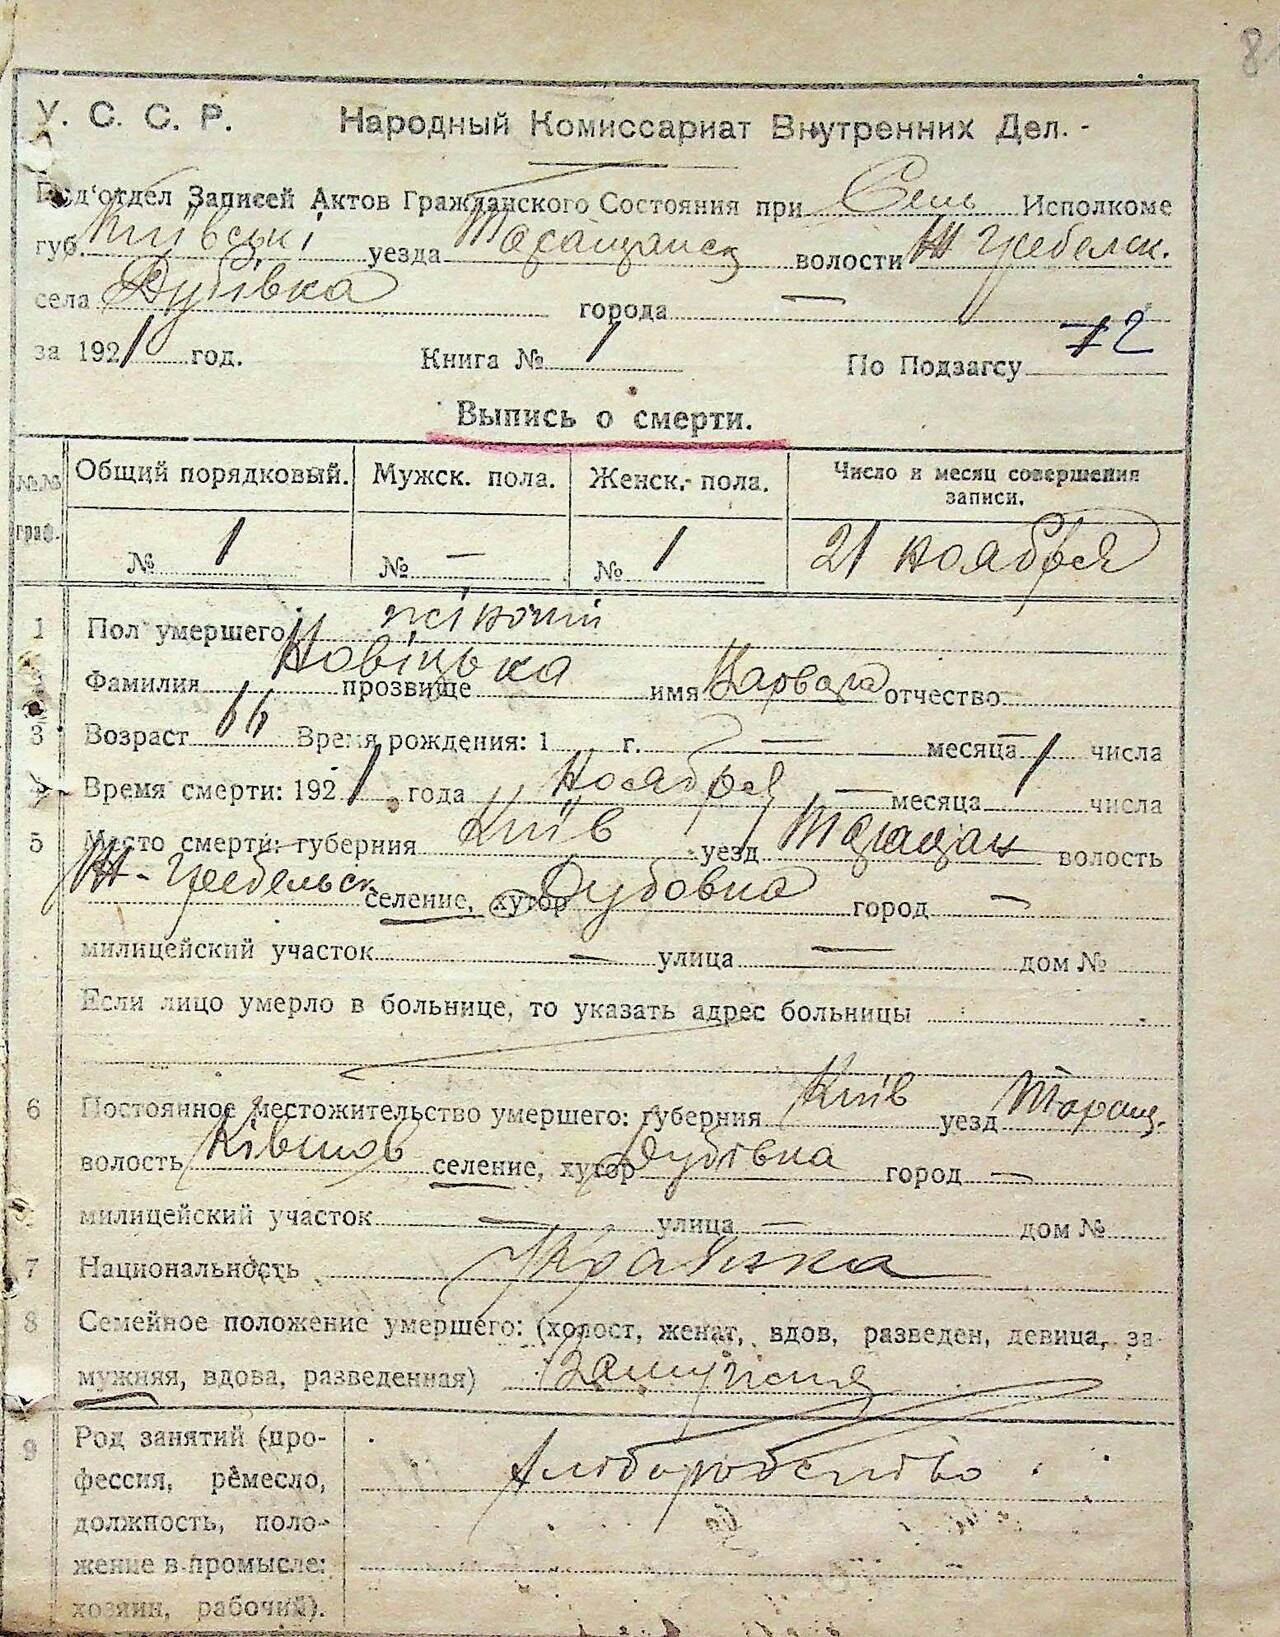 У. С. С. Р. Народный Комиссариат Внутренних Дел.
Под'отдел Записей Актов Гражданского Состояния при Сель Исполкоме
губ. Київські уезда Таращанск волости Ж Гребелск.
села Дубівка города —
за 1921 год. Книга № 1 По Подзагсу 12
Выпись о смерти.
№№ граф. Общий порядковый. Мужск. пола. Женск. пола. Число и месяц совершения записи.
№ 1 № — № 1 21 ноября
1 Пол умершего жіночій
Фамилия Новіцька прозвище имя Варвара отчество
3 Возраст 66 Время рождения: 1 г. — месяца числа
4 Время смерти: 1921 года Ноября — месяца 1 числа
5 Место смерти: губерния Київ уезд Таращан волость
Ж-Гребельск селение, хутор Дубовка город —
милицейский участок — улица — дом №
Если лицо умерло в больнице, то указать адрес больницы
6 Постоянное местожительство умершего: губерния Київ уезд Таращ.
волость селение, хутор Дубівка город —
милицейский участок — улица — дом №
7 Национальность Українка
8 Семейное положение умершего: (холост, женат, вдов, разведен, девица, за-
мужняя, вдова, разведенная) Замужня
9 Род занятий (про-
фессия, ремесло, хлібородство
должность, поло-
жение в промысле:
хозяин, рабочий).